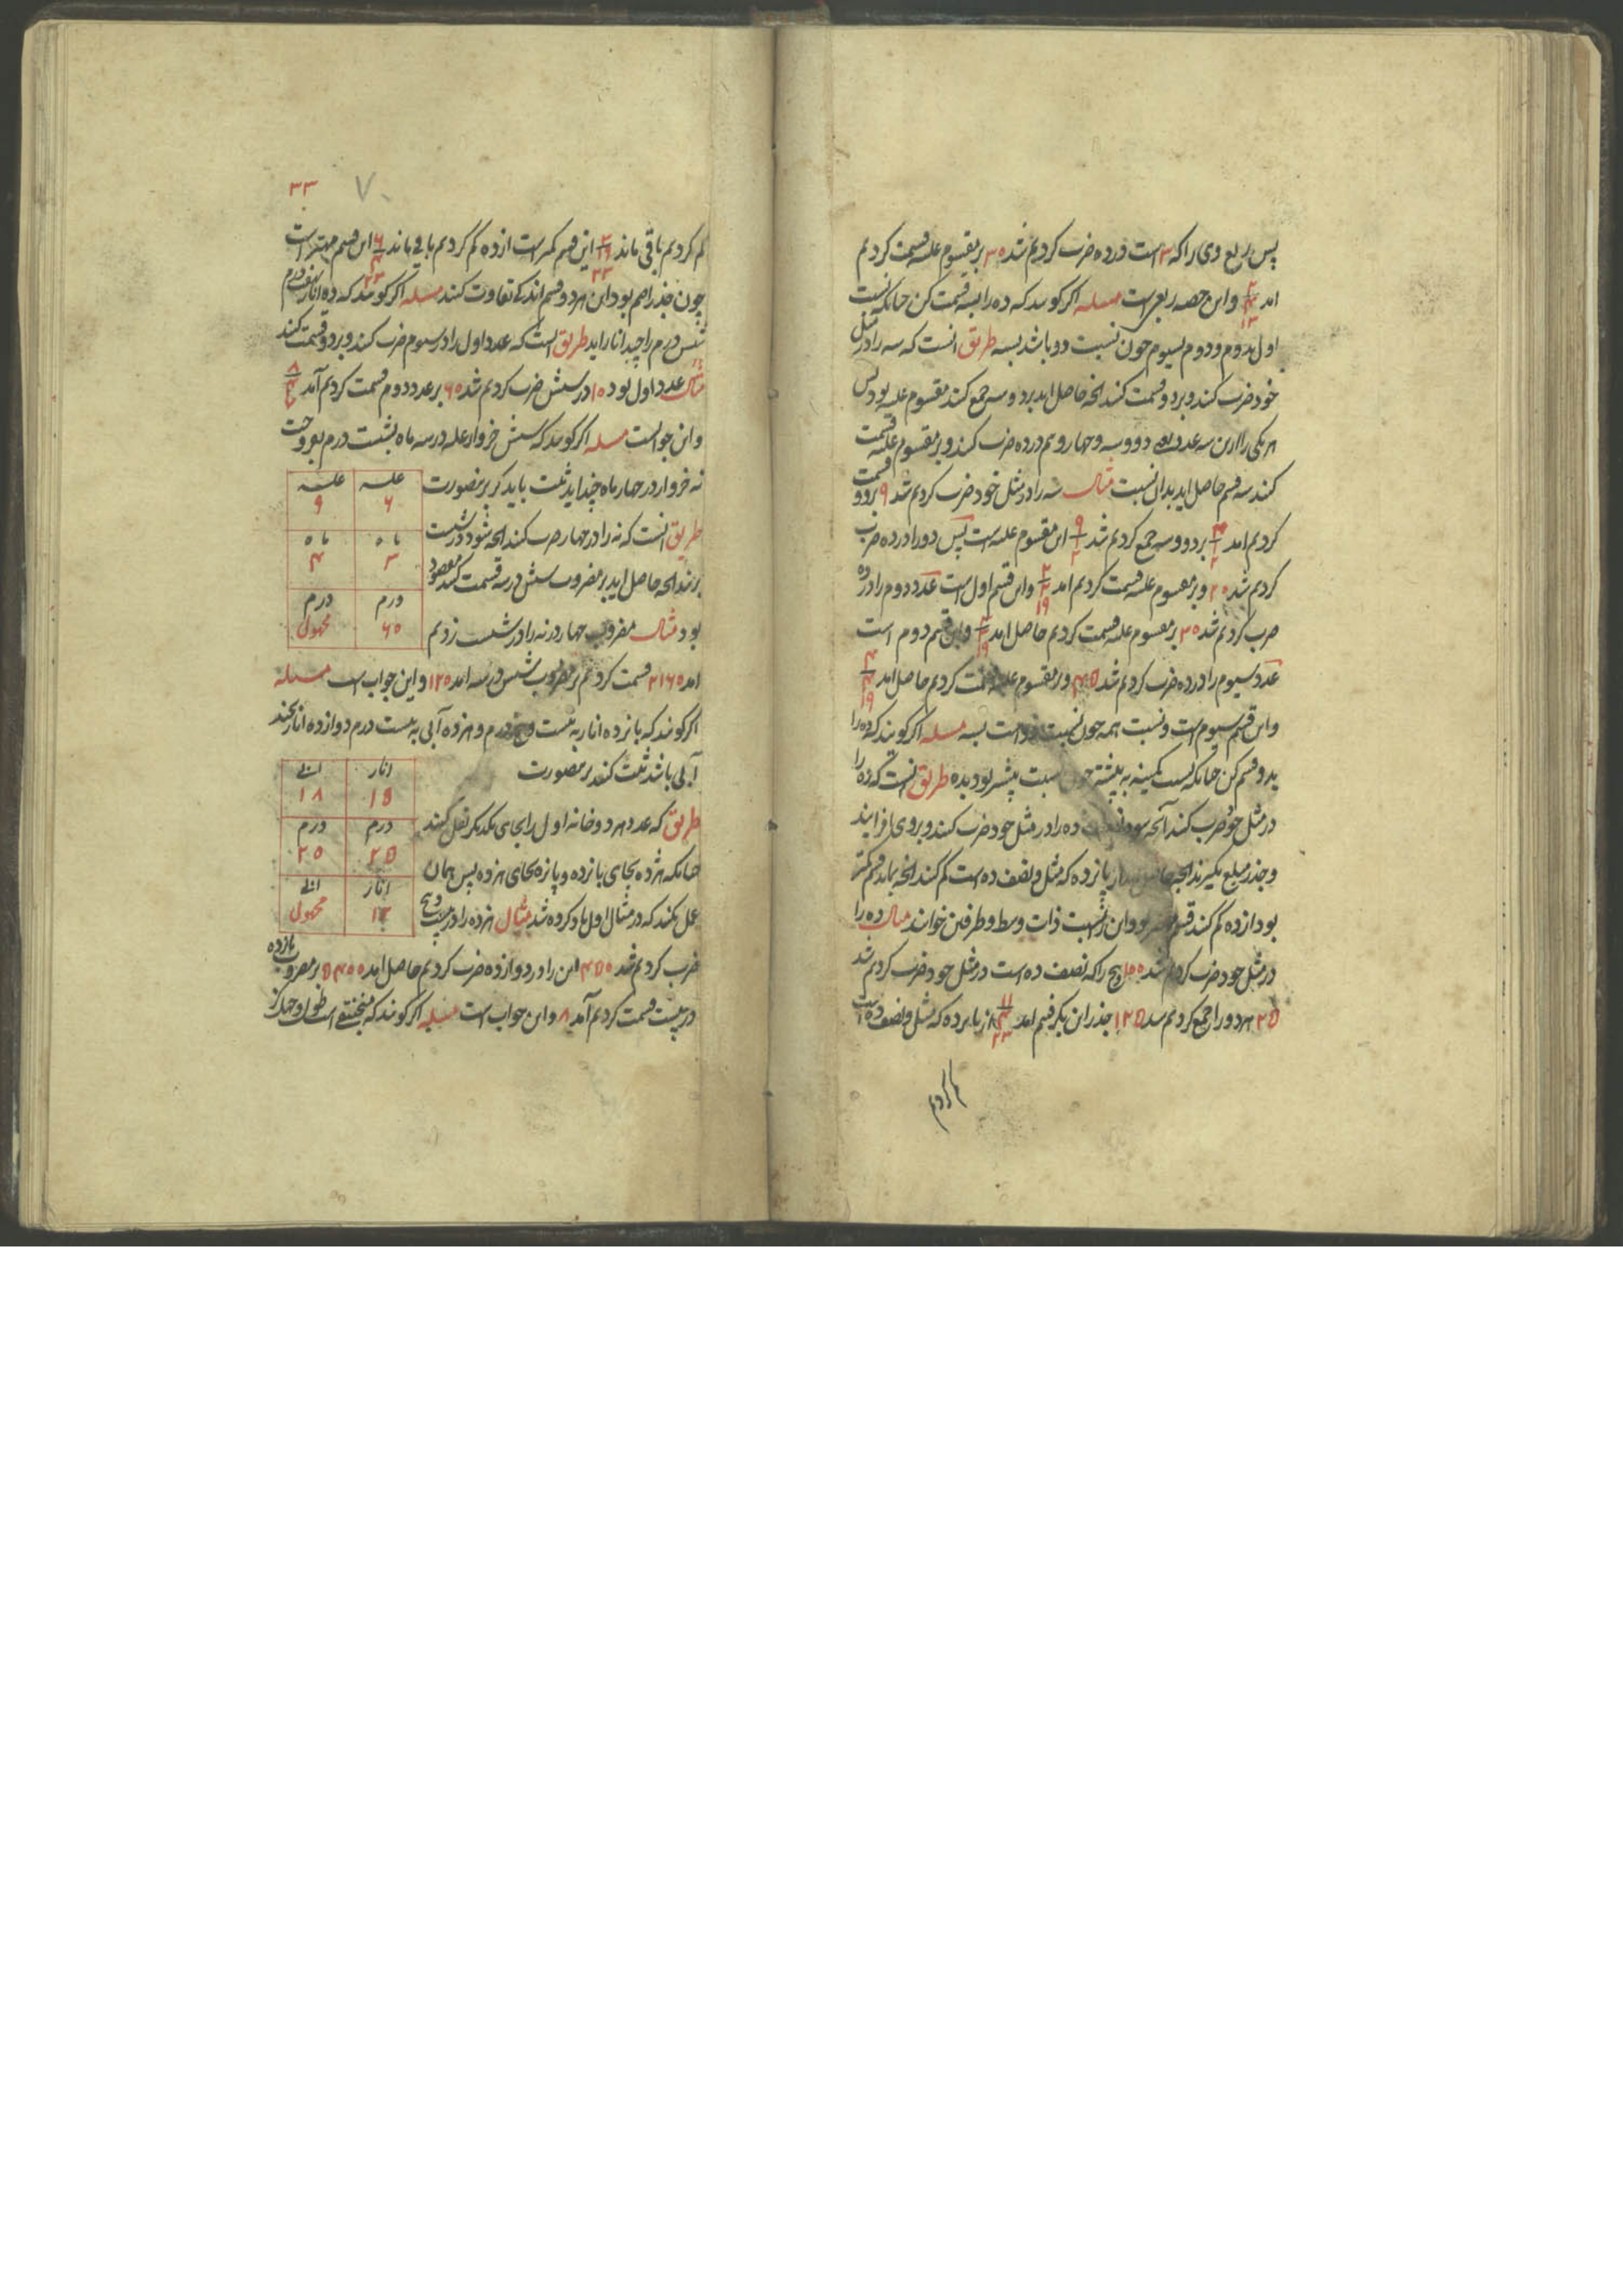 پس ربع وی را که ۳ است در ده ضرب کردیم شد ۳۰ بر مقسوم علیه قسمت کردیم
امد و این حصه ربعست مسله اگر کویند که ده را بسه قسمت کن چنانکه نسبت
اول بدوم و دوم بسیوم چون نسبت دو باشد بسه طریق انست که سه را در مثل
خود ضرب کند و بر دو قسمت کند انچه حاصل اید بر دو و سه جمع کند مقسوم علیه بود پس
هر یکی را ازین سه عدد دو و سه و چهار و نیم در ده ضرب کند و بر مقسوم علیه قسمت
کند سه قسم حاصل اید بدان نسبت مثال سه را در مثل خود ضرب کردیم شد ۹ بر دو قسمت
کردیم امد ۴ ۱ ۲ بر دو و سه جمع کردیم شد ۹ ۱ ۲ این مقسوم علیه است پس دو را در ده ضرب
کردیم شد ۲۰ و بر مقسوم علیه قسمت کردیم امد ۲ ۲ ۱۹ و این قسم اول است عدد دوم را در ده
ضرب کردیم شد ۳۰ بر مقسوم علیه قسمت کردیم حاصل امد ۳ ۳ ۱۹ و این قسم دوم است
عدد سیوم را در ده ضرب کردیم شد ۴۵ و بر مقسوم علیه قسمت کردیم حاصل امد ۴ ۱۹
و این قسم سیوم است و نسبت همه چون نسبت دو است بسه مسله اگر کویند که ده را
بدو قسم کن چنانکه نسبت کمینه به بیشینه چون نسبت بیشتر بود بده طریق انست که ده را
در مثل خود ضرب کند آنچه شود ده را در مثل خود ضرب کند و بر وی افزایند
و جذر مبلغ بگیرند انچه از پانزده که مثل و نصف ده است کم کند انچه بماند قسم کمتر
بود از ده کم کند قسم بود و این را نسبت ذات وسط و طرفین خوانند مثال ده را
در مثل خود ضرب کردیم شد ۱۰۰ و پنج را که نصف ده است در مثل خود ضرب کردیم شد
۲۵ هر دو را جمع کردیم شد ۱۲۵ جذر این بکرفتیم امد ۱۱ ۴ ۲۳ از پانزده که مثل و نصف ده است
کم کردیم
۳۳
۷
کم کردیم باقی ماند ۳ ۱۹ ۲۳ این قسم کمتر است از ده کم کردیم باقی ماند ۶ ۴ ۲۳ این قسم مهتر است
چون جذر اصم بود این هر دو قسم اندکی تفاوت کند مسله اگر کویند که ده انار
شش درم را چند انار اید طریق انست که عدد اول را در سیوم ضرب کند و بر دوم قسمت کند
مثال عدد اول بود ۱۰ در شش ضرب کردیم شد ۶۰ بر عدد دوم قسمت کردیم آمد ۸
و این جوابست مسله اگر کویند که شش خروار غله در سه ماه بشست درم بفروخت
نه خروار در چهار ماه چند اید ثبت باید کرد برینصورت
طریق انست که نه را در چهار ضرب کند انچه شود در شست
زند انچه حاصل اید بر مضروب شش در سه قسمت کند مقصود
بود مثال مضروب چهار در نه را در شست زدیم
غله غله
۶ ۹
ماه ماه
۳ ۴
درم درم
۶۰ مجهول
امد ۲۱۶۰ قسمت کردیم بر مضروب شش در سه امد ۱۲۰ و این جواب است مسله
اگر کویند که پانزده انار به بیست و پنج درم و هژده آبی به بیست درم دوازده انار بچند
آبی باشد ثبت کند برینصورت
طریق که عدد هر دو خانه اول را بجای یکدیکر نقل کنند
چنانکه هژده بجای پانزده و پانزده بجای هژده پس همان
عمل کند که در مثال اول یاد کرده شد مثال هژده را در بیست و پنج
انار ابی
۱۵ ۱۸
درم درم
۲۵ ۲۰
انار ابی
۱۲ مجهول
ضرب کردیم شد ۴۵۰ این را در دوازده ضرب کردیم حاصل امد ۵۴۰۰ بر مضروب پانزده
در بیست قسمت کردیم آمد ۱۸ و این جواب است مسله اگر کویند که